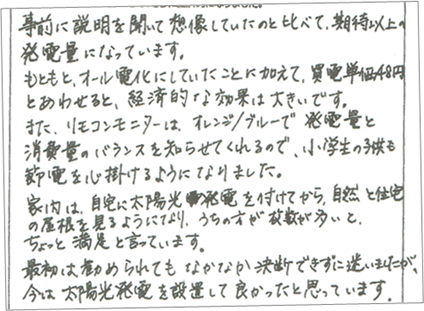 事前に説明を聞いて想像していたのと比べて、期待以上の
発電量になっています。
もともと、オール電化にしていたことに加えて、買電単価48円
とあわせると、経済的な効果は大きいです。
また、リモコンモニターは、オレンジ/ブルーで発電量と
消費量のバランスを知らせてくれるので、小学生の子供も
節電を心掛けるようになりました。
家内は、自宅に太陽光発電を付けてから、自然と住宅
の屋根を見るようになり、うちの方が枚数が多いと、
ちょっと満足と言っています。
最初は勧められてもなかなか決断できずに迷いましたが、
今は太陽光発電を設置して良かったと思っています。